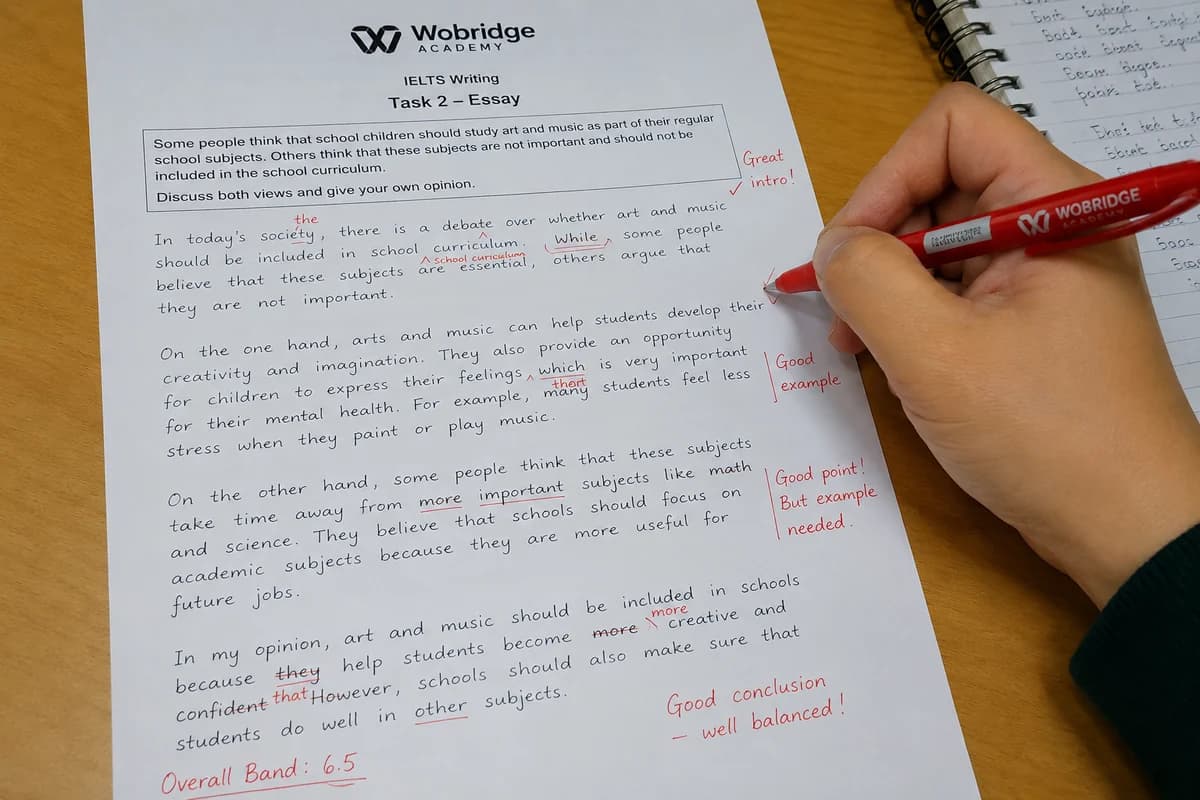 Wobridge
ACADEMY
IELTS Writing
Task 2 – Essay
Some people think that school children should study art and music as part of their regular
school subjects. Others think that these subjects are not important and should not be
included in the school curriculum.
Discuss both views and give your own opinion.
Great
✓ intro!
the
In today's society, there is a debate over whether art and music
should be included in school curriculum. While, some people
school curiculum
believe that these subjects are essential, others argue that
they are not important.
On the one hand, arts and music can help students develop their
creativity and imagination. They also provide an opportunity
for children to express their feelings, which is very important
for their mental health. For example, many students feel less
stress when they paint or play music.
Good
example
On the other hand, some people think that these subjects
take time away from more important subjects like math
and science. They believe that schools should focus on
academic subjects because they are more useful for
future jobs.
Good point!
But example
needed.
In my opinion, art and music should be included in schools
more
because they help students become more creative and
confident that However, schools should also make sure that
students do well in other subjects.
Good conclusion
– well balanced!
Overall Band: 6.5
WOBRIDGE
ACADEMY